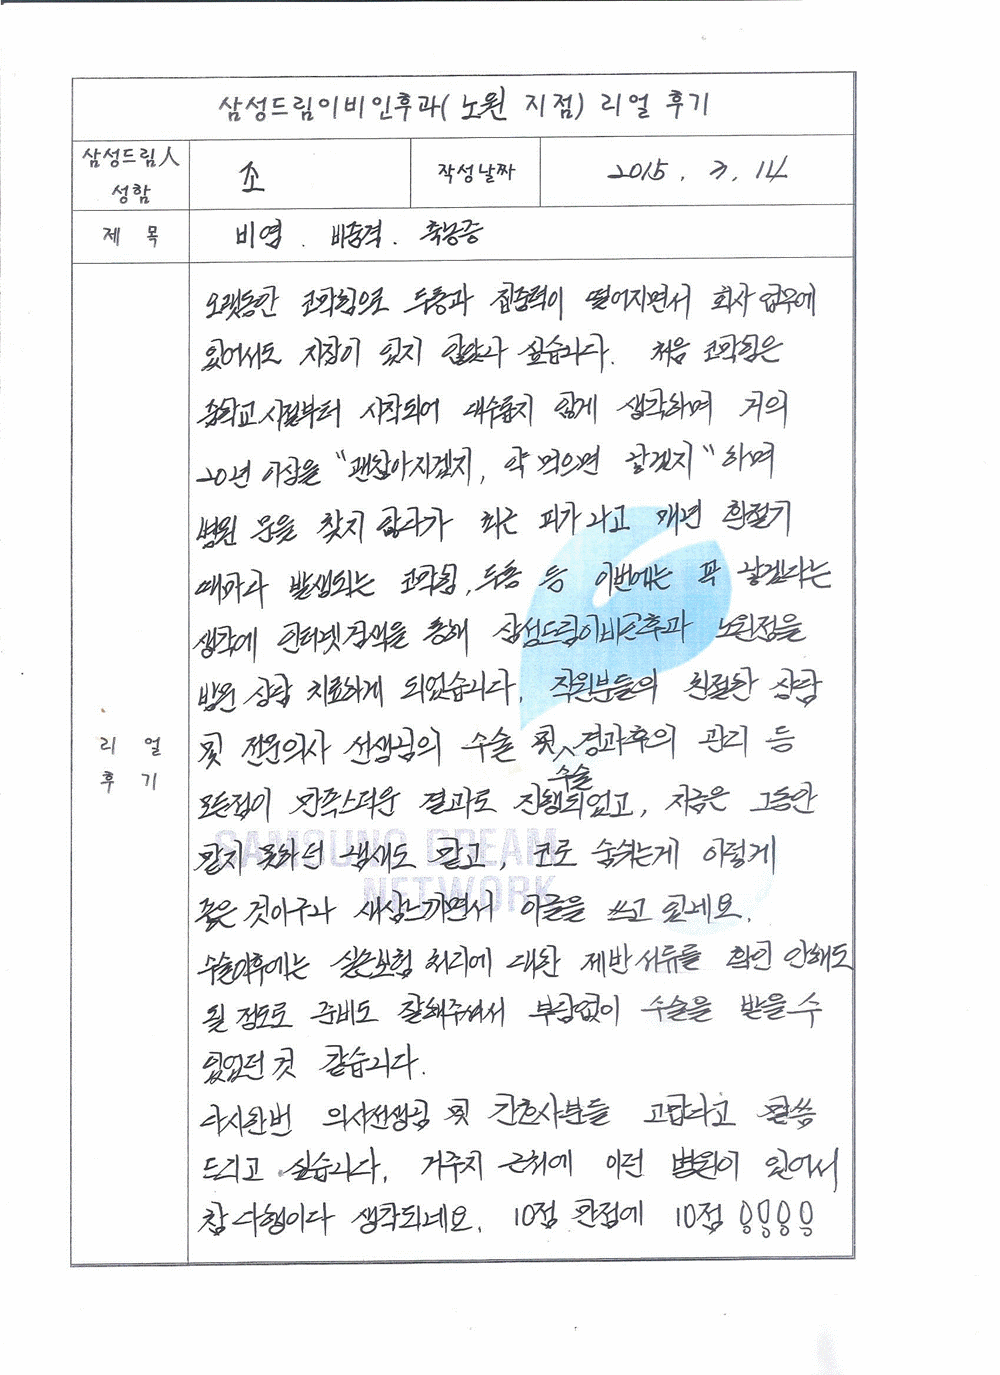 삼성드림이비인후과( 노원 지점) 리얼 후기
삼성드림人 성함 조 작성날짜 2015. 3. 14
제 목 비염. 비중격. 축농증
리 얼 후 기
오랫동안 코막힘으로 두통과 집중력이 떨어지면서 회사 업무에
있어서도 지장이 있지 않았나 싶습니다. 처음 코막힘은
중학교 시절부터 시작되어 대수롭지 않게 생각하며 거의
20년 이상을 "괜찮아지겠지, 약 먹으면 낫겠지" 하며
병원 문을 찾지 않다가 최근 피가 나고 매년 환절기
때마다 발생되는 코막힘, 두통 등 이번에는 꼭 낫겠다는
생각에 인터넷검색을 통해 삼성드림이비인후과 노원점을
방문 상담 치료하게 되었습니다. 직원분들의 친절한 상담
및 전문의사 선생님의 수술 및 수술 경과후의 관리 등
모든점이 만족스러운 결과로 진행되었고, 지금은 그동안
맡지 못하던 냄새도 맡고, 코로 숨쉬는게 이렇게
좋은 것이구나 새삼느끼면서 이글을 쓰고 있네요.
수술이후에는 실손보험 처리에 대한 제반서류를 확인 안해도
될 정도로 준비도 잘해주셔서 부담없이 수술을 받을 수
있었던 것 같습니다.
다시한번 의사선생님 및 간호사분들 고맙다고 말씀
드리고 싶습니다. 거주지 근처에 이런 병원이 있어서
참 다행이다 생각되네요. 10점 만점에 10점 !!!!
SAMSUNG DREAM
NETWORK